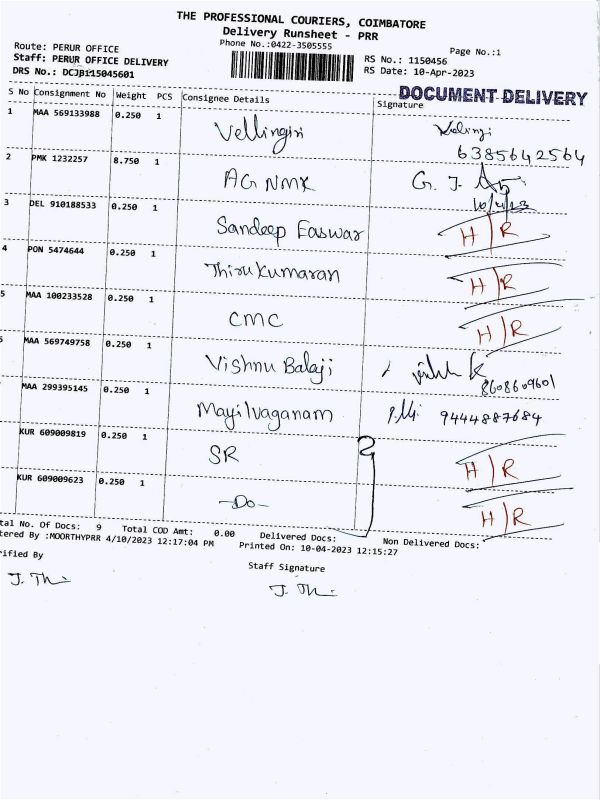 THE PROFESSIONAL COURIERS, COIMBATORE
Delivery Runsheet - PRR
Phone No.:0422-3505555
Page No.:1
Route: PERUR OFFICE
Staff: PERUR OFFICE DELIVERY
DRS No.: DCJB115045601
RS No.: 1150456
RS Date: 10-Apr-2023
DOCUMENT DELIVERY
S No Consignment No Weight PCS Consignee Details Signature
1 MAA 569133988 0.250 1 Vellingiri
6385642564
2 PMK 1232257 8.750 1 AG NMK G. J.
10/4/23
3 DEL 910188533 0.250 1 Sandeep Easwar H/R
4 PON 5474644 0.250 1 Thirukumaran H/R
5 MAA 100233528 0.250 1 CMC H/R
MAA 569749758 0.250 1 Vishnu Balaji
8608609601
MAA 299395145 0.250 1 Mayilvaganam 9444887684
KUR 609009819 0.250 1 SR H/R
KUR 609009623 0.250 1 -Do- H/R
tal No. Of Docs: 9 Total COD Amt: 0.00 Delivered Docs: Non Delivered Docs:
tered By :MOORTHYPRR 4/10/2023 12:17:04 PM Printed On: 10-04-2023 12:15:27
rified By Staff Signature